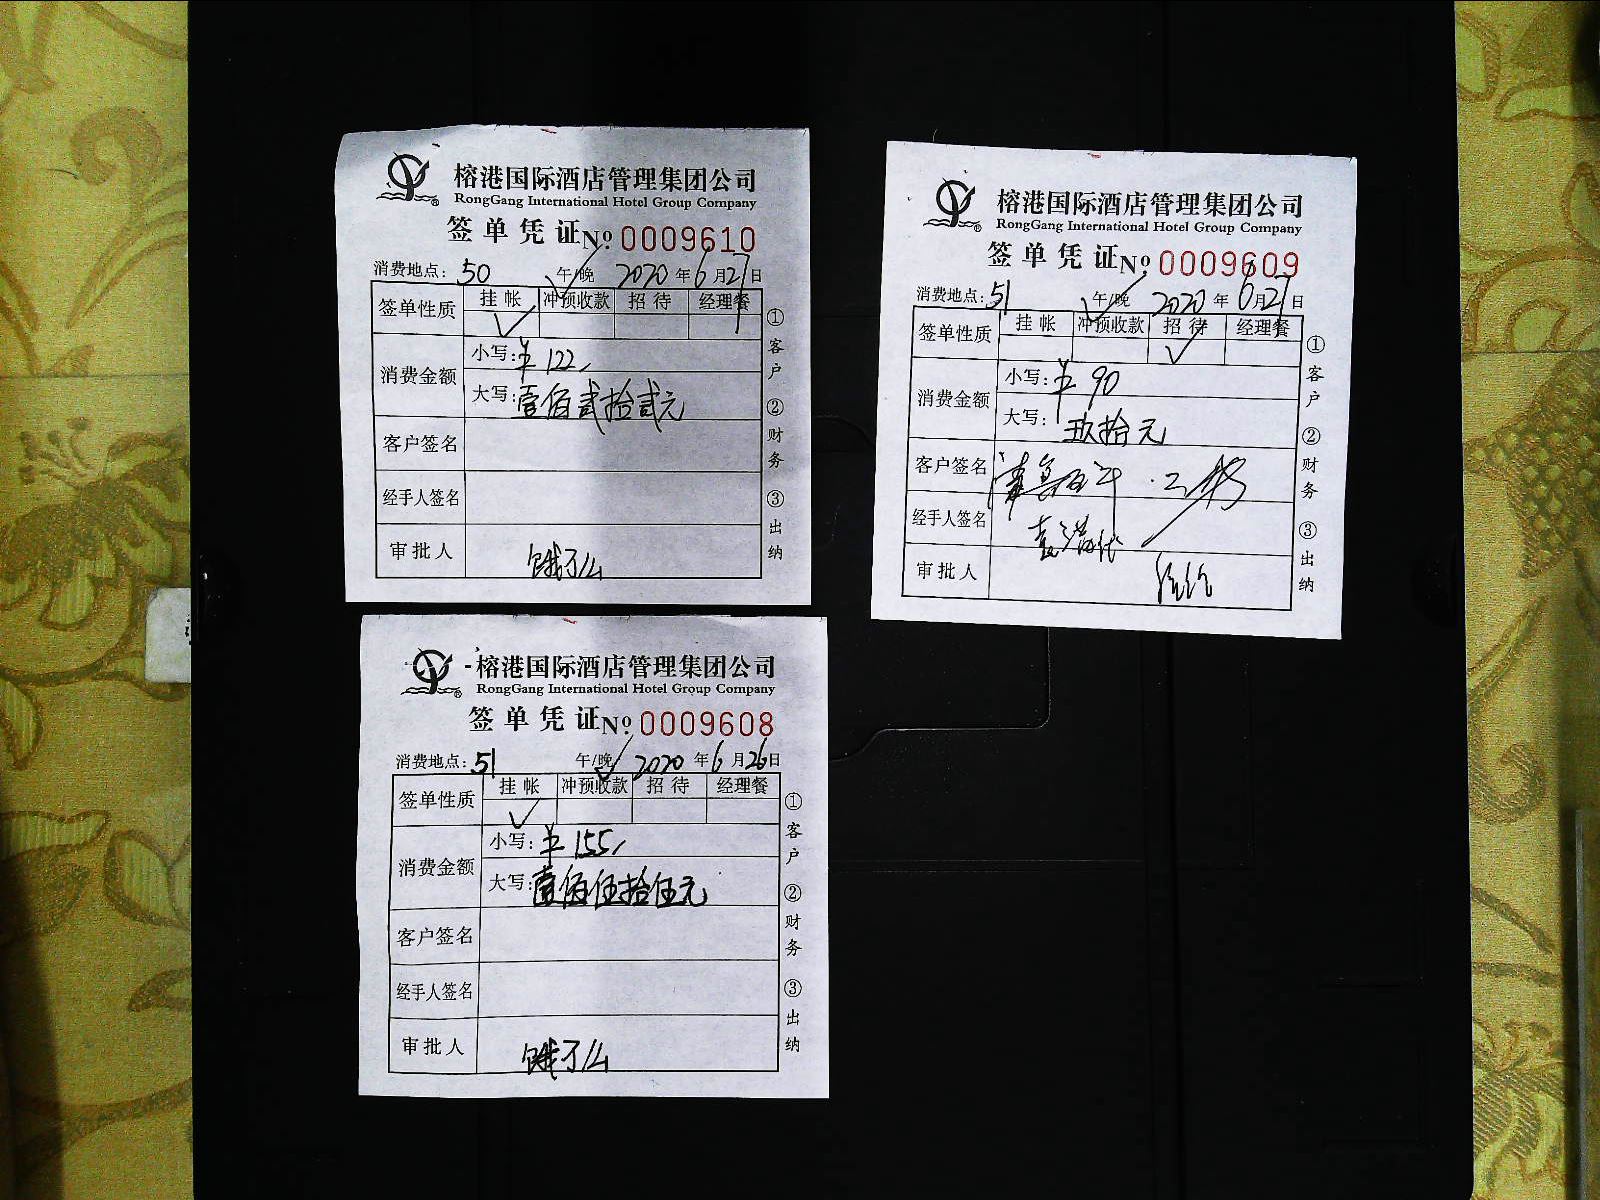 榕港国际酒店管理集团公司
RongGang International Hotel Group Company
签单凭证 No 0009610
消费地点: 50 午/晚 2020年6月27日
签单性质 挂帐 冲预收款 招待 经理餐
消费金额
小写: ¥ 122
大写: 壹佰贰拾贰元
客户签名
经手人签名
审批人 饿了么
①客户 ②财务 ③出纳
榕港国际酒店管理集团公司
RongGang International Hotel Group Company
签单凭证 No 0009609
消费地点: 51 午/晚 2020年6月27日
签单性质 挂帐 冲预收款 招待 经理餐
消费金额
小写: ¥ 90
大写: 玖拾元
客户签名
经手人签名
审批人
①客户 ②财务 ③出纳
榕港国际酒店管理集团公司
RongGang International Hotel Group Company
签单凭证 No 0009608
消费地点: 51 午/晚 2020年6月26日
签单性质 挂帐 冲预收款 招待 经理餐
消费金额
小写: ¥ 155
大写: 壹佰伍拾伍元
客户签名
经手人签名
审批人 饿了么
①客户 ②财务 ③出纳